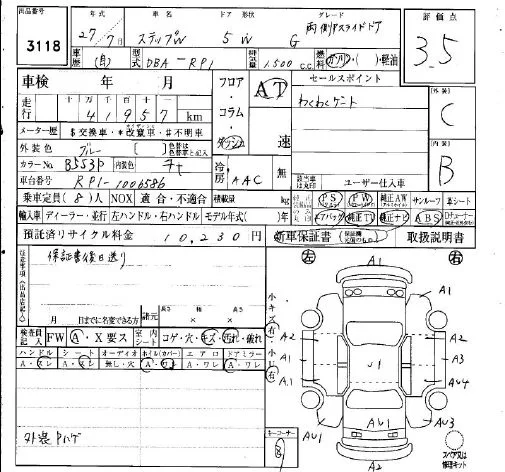 出品番号 年式 車名 ドア 形状 グレード 評価点
3118 27/7月 ステップW 5 W G 両側Pスライドドア 3.5
車歴 (自) 型式 DBA-RP1 排気量 1,500 c.c. 燃料 ガソリン・( )・軽油
車検 年 月 フロア AT セールスポイント
走行 十万 万 千 百 十 一
41957 km コラム わくわくゲート C
メーター歴 $ 交換車・*改竄車・#不明車 ダッシュ 速
外装色 ブルー 色替車 内装 B
カラーNo. B553P 内装色 チャ 冷房 AAC 無
車台番号 RP1-1006586 ユーザー仕入車
乗車定員(8)人 NOX 適合・不適合 積載量 kg PS・PW・純正AW サンルーフ 革シート
輸入車 ディーラー・並行 左ハンドル・右ハンドル モデル年式( )年 エアバック 純正TV 純正ナビ ABS
預託済リサイクル料金 10,230円 新車保証書 取扱説明書
保証書後日送り 左 A1 右
月 日までに名変できる方 諸元 長さ × 幅 × 高さ
検査員記入 FW A・X 要ス 室内シート コゲ・穴・キズ・汚れ・擦れ
ハンドル シート オーディオ ホイル(カバー) エアロ ドアミラー
A・スレ A・スレ 無し・穴 A・ワレ A・ワレ A・ワレ
小キズ 右 小
A1
A2 A3
A1 U1 AU4
外装Pハゲ
AU1 AU1 AU3
キーコーナー B A2 スペアタイヤ又は修理キット